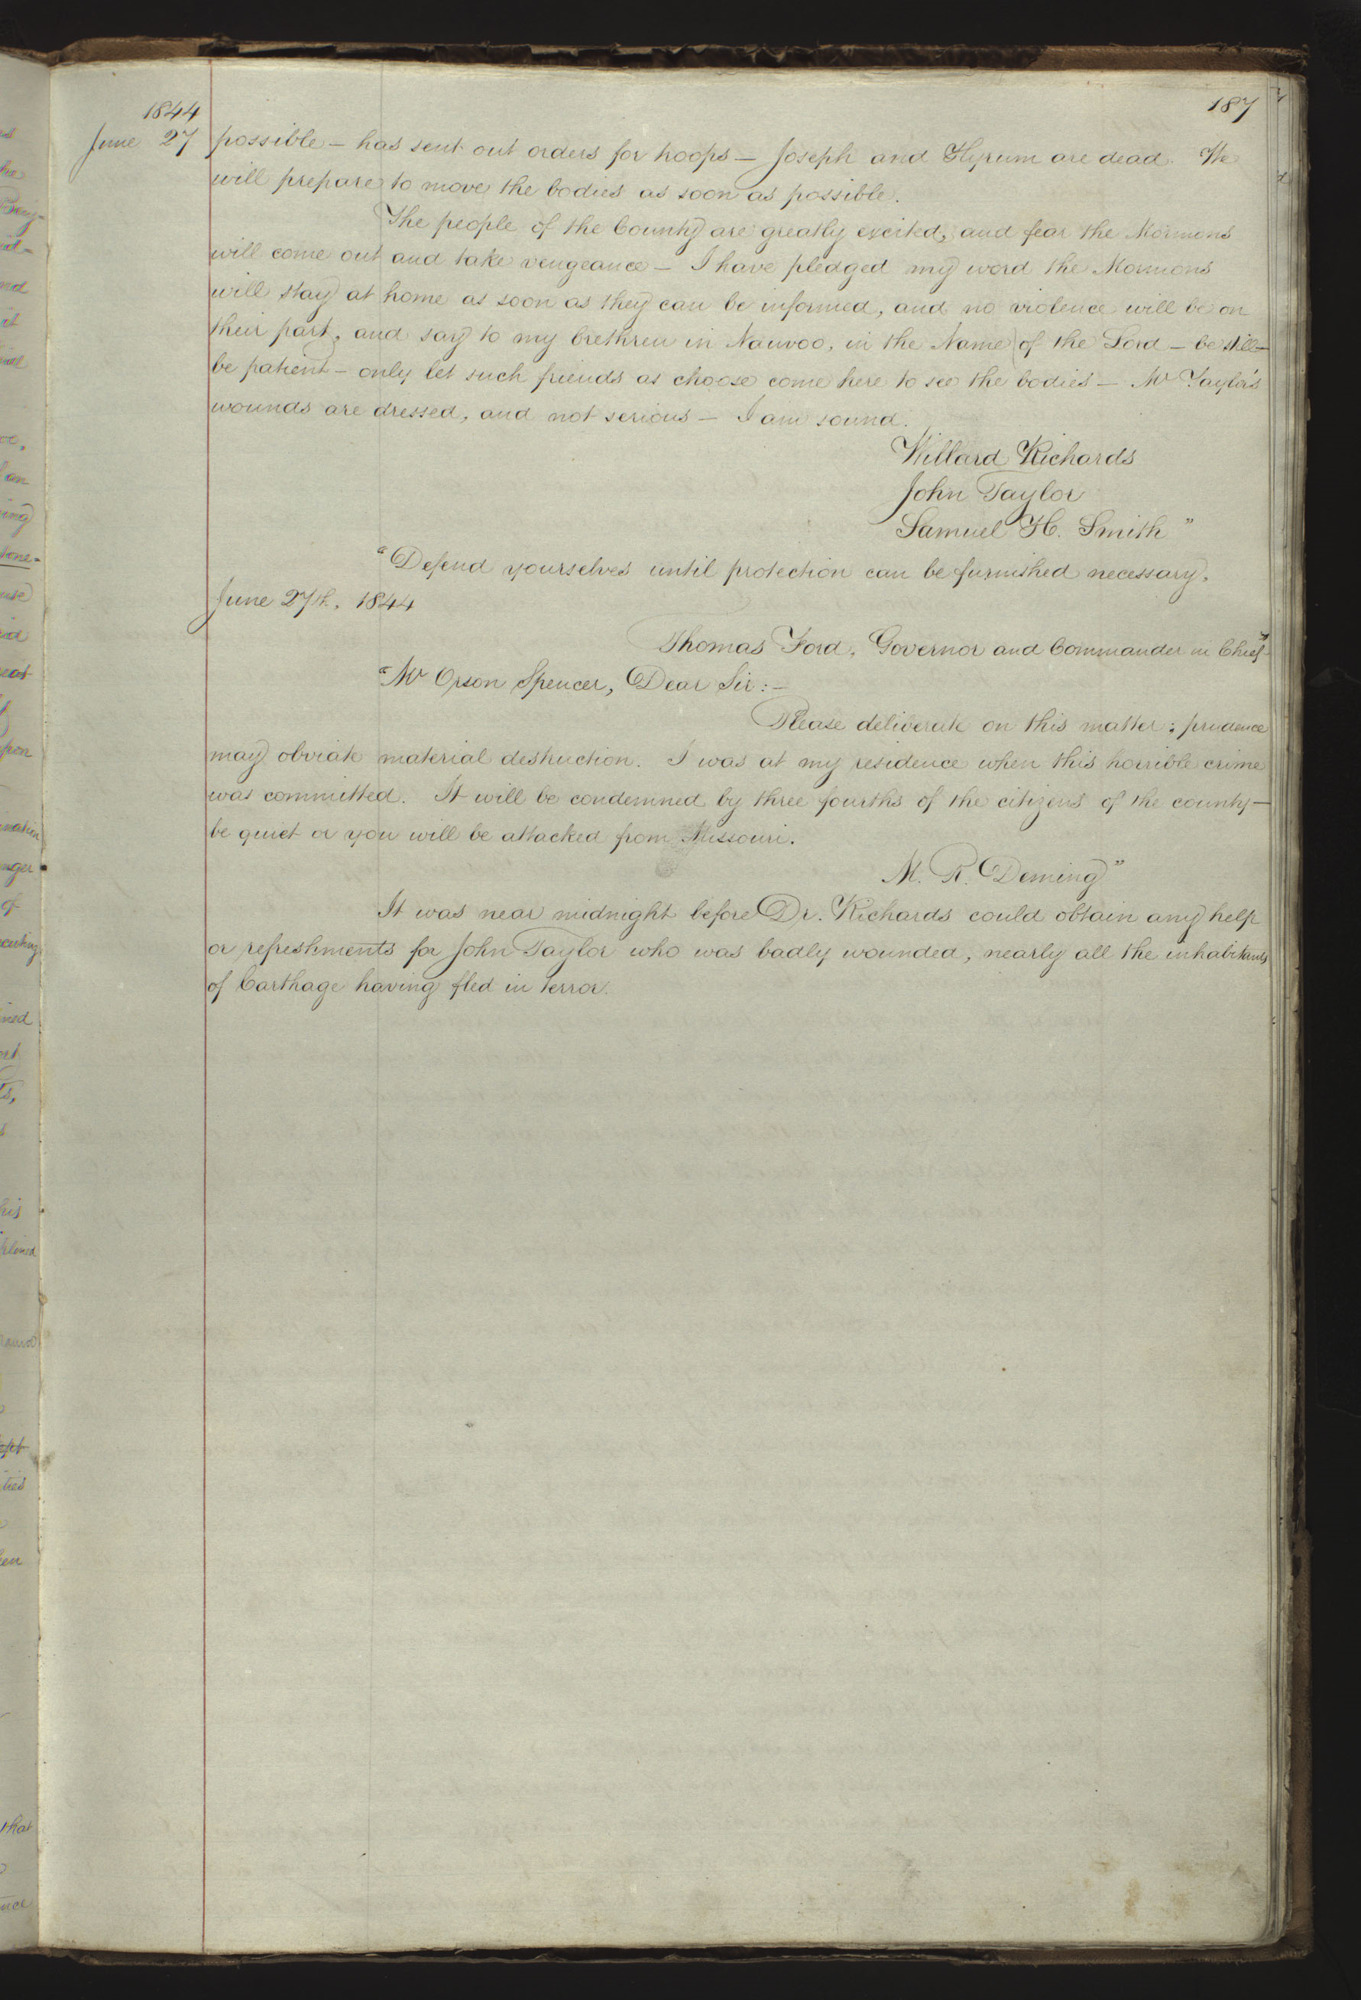 187
1844
June 27 possible — has sent out orders for troops — Joseph and Hyrum are dead. We
will prepare to move the bodies as soon as possible.
The people of the County are greatly excited, and fear the Mormons
will come out and take vengeance — I have pledged my word the Mormons
will stay at home as soon as they can be informed, and no violence will be on
their part, and say to my brethren in Nauvoo, in the Name of the Lord — be still —
be patient — only let such friends as choose come here to see the bodies — Mr Taylor's
wounds are dressed, and not serious — I am sound.
Willard Richards
John Taylor
Samuel H. Smith"
"Defend yourselves until protection can be furnished necessary,
June 27th, 1844
Thomas Ford, Governor and Commander in Chief"
"Mr Orson Spencer, Dear Sir:—
Please deliberate on this matter; prudence
may obviate material destruction. I was at my residence when this horrible crime
was committed. It will be condemned by three fourths of the citizens of the county —
be quiet or you will be attacked from Missouri.
M. R. Deming"
It was near midnight before Dr. Richards could obtain any help
or refreshments for John Taylor who was badly wounded, nearly all the inhabitants
of Carthage having fled in terror.